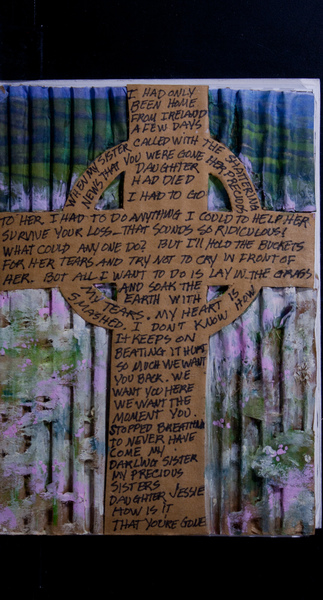 I HAD ONLY
BEEN HOME
FROM IRELAND
A FEW DAYS
WHEN MY SISTER CALLED WITH THE SHATTERING
NEWS THAT YOU WERE GONE HER PRECIOUS
DAUGHTER
HAD DIED
I HAD TO GO
TO HER I HAD TO DO ANYTHING I COULD TO HELP HER
SURVIVE YOUR LOSS—THAT SOUNDS SO RIDICULOUS!
WHAT COULD ANY ONE DO? BUT I'LL HOLD THE BUCKETS
FOR HER TEARS. AND TRY NOT TO CRY IN FRONT OF
HER. BUT ALL I WANT TO DO IS LAY IN THE GRASS
AND SOAK THE
EARTH WITH
MY TEARS. MY HEART IS
SLASHED. I DON'T KNOW HOW
IT KEEPS ON
BEATING IT HURTS
SO MUCH WE WANT
YOU BACK. WE
WANT YOU HERE
WE WANT THE
MOMENT YOU
STOPPED BREATHING
TO NEVER HAVE
COME MY
DARLING SISTER
MY PRECIOUS
SISTERS
DAUGHTER JESSIE
HOW IS IT
THAT YOU'RE GONE